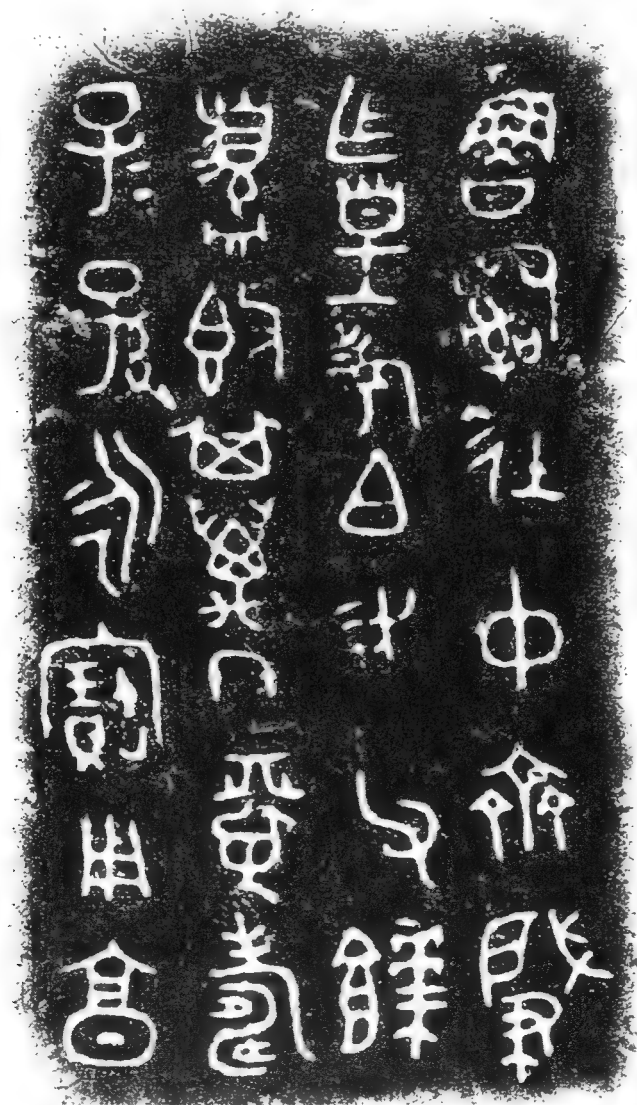 魯司徒中齊肇
乍皇考白走父餴
盨簋其萬年眉壽
子=孫=永寶用享